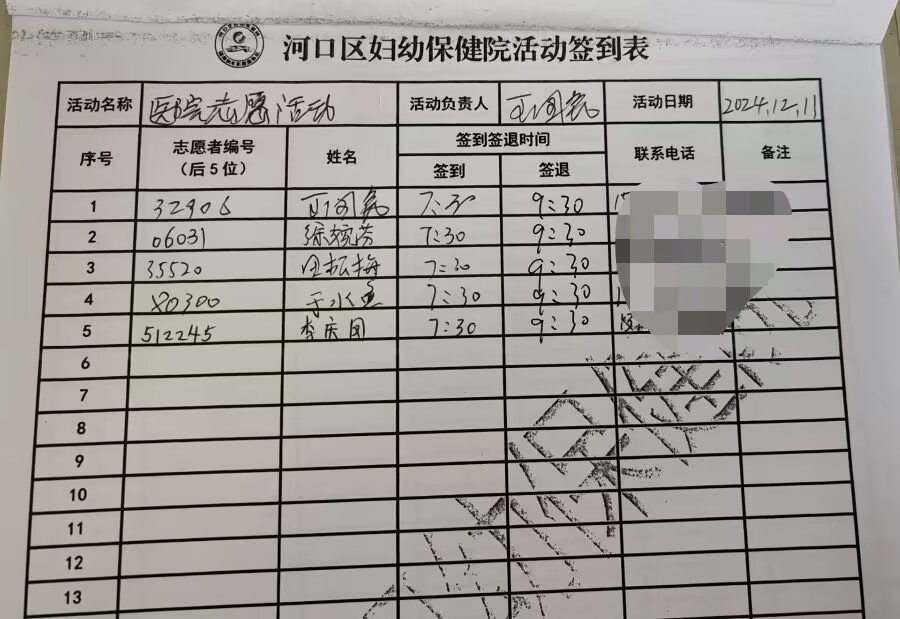 河口区妇幼保健院活动签到表
活动名称 医院志愿活动 活动负责人 活动日期 2024.12.11
序号 志愿者编号（后5位） 姓名 签到签退时间 联系电话 备注
签到 签退
1 32906 7:30 9:30
2 06031 7:30 9:30
3 35520 田松梅 7:30 9:30
4 80300 于水 7:30 9:30
5 512245 李庆团 7:30 9:30
6
7
8
9
10
11
12
13